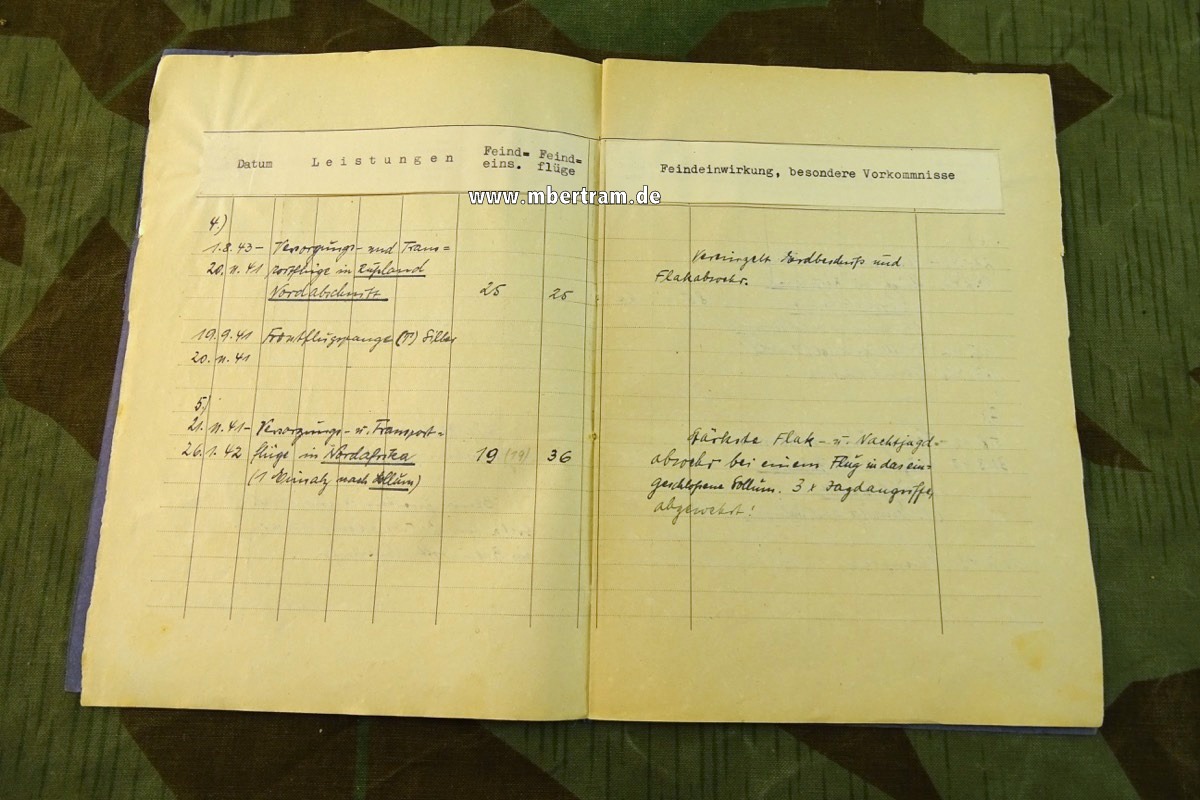 Datum Leistungen Feind= Feind=
eins. flüge
Feindeinwirkung, besondere Vorkommnisse
www.mbertram.de
4.)
1.8.43 – Versorgungs- und Trans=
20.11.41 portflüge in Rußland
Nordabschnitt 25 25
Vereinzelt Erdbeschuß und
Flakabwehr.
19.9.41 Frontflugspange
20.11.41
5.)
21.11.41 – Versorgungs- u. Transport=
26.1.42 flüge in Nordafrika 19 (19) 36
(1 Einsatz nach Sollum)
Stärkste Flak- u. Nachtjagd-
abwehr bei einem Flug in das ein=
geschlossene Sollum. 3 x Jagdangriffe
abgewehrt!